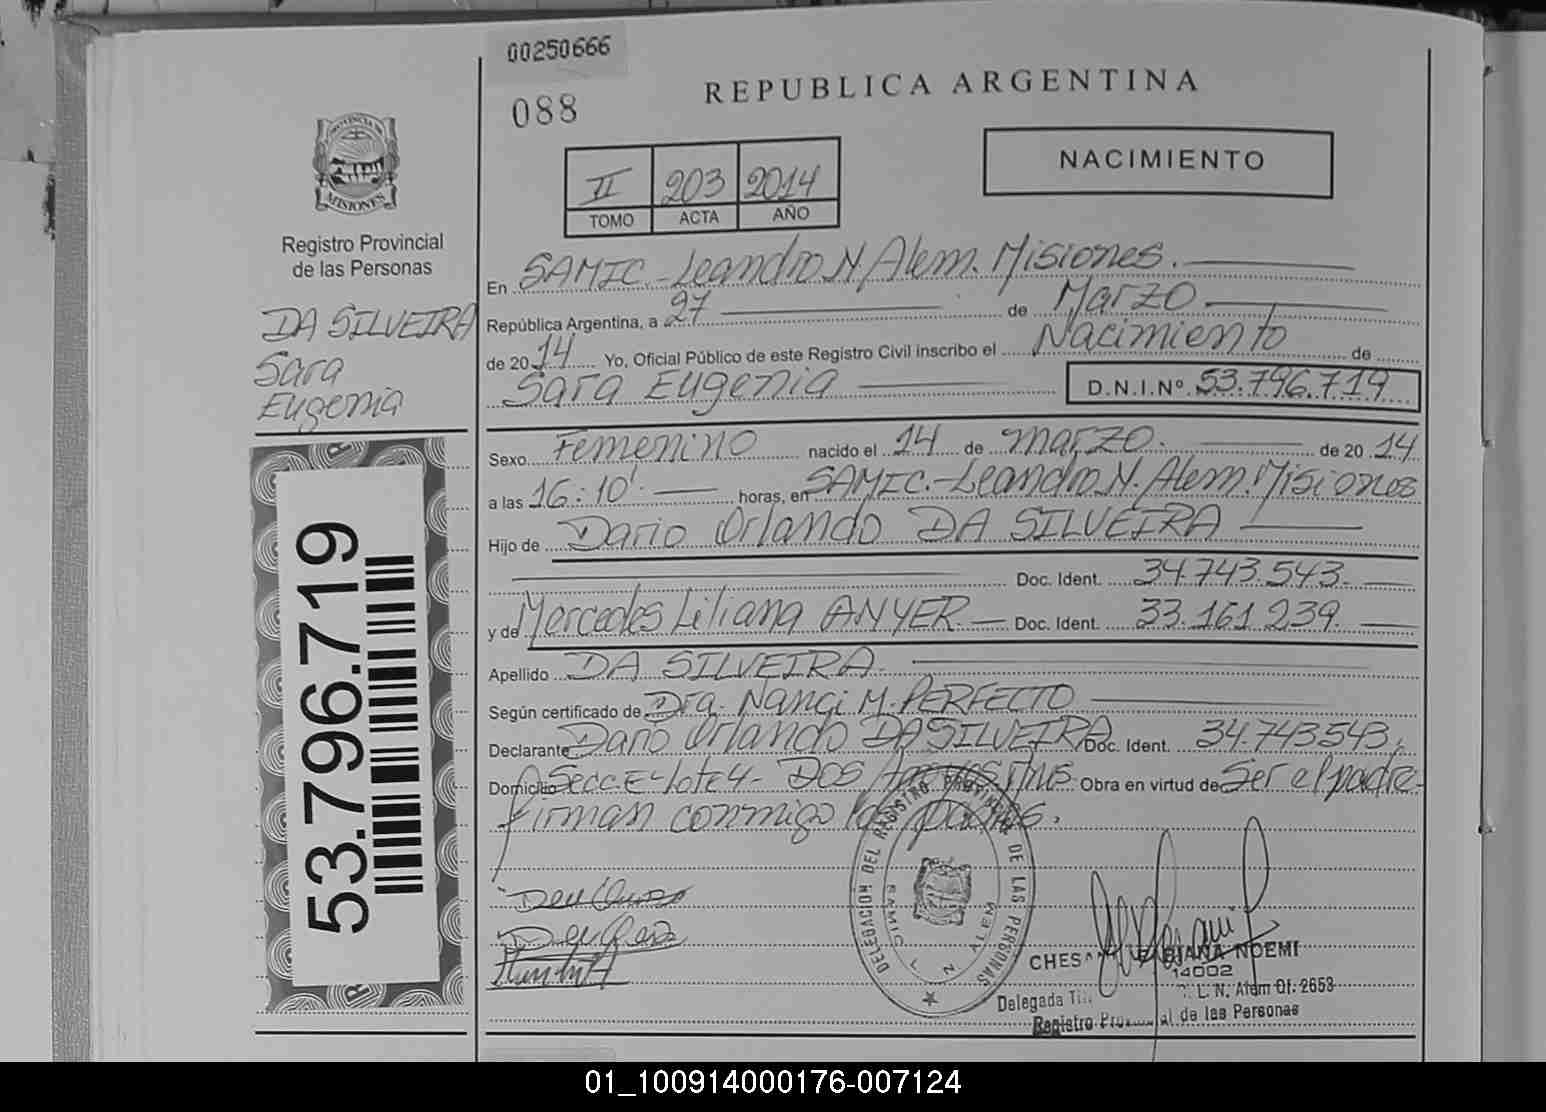 00250666
088
REPUBLICA ARGENTINA
NACIMIENTO
II 203 2014
TOMO ACTA AÑO
PROVINCIA DE
MISIONES
Registro Provincial
de las Personas
DA SILVEIRA
Sara
Eugenia
53.796.719
En SAMIC.-Leandro N. Alem. Misiones.
República Argentina, a 27 de Marzo
de 2014 Yo, Oficial Público de este Registro Civil inscribo el Nacimiento de
Sara Eugenia D.N.I.Nº 53.796.719
Sexo Femenino nacido el 14 de marzo. de 2014
a las 16:10' horas, en SAMIC.-Leandro N. Alem. Misiones
Hijo de Dario Orlando DA SILVEIRA
Doc. Ident. 34.743.543.
y de Mercedes Liliana ANYER. Doc. Ident. 33.161.239.
Apellido DA SILVEIRA.
Según certificado de Dra. Nanci M. PERFECTO
Declarante Dario Orlando DA SILVEIRA Doc. Ident. 34.743.543.
Domicilio Secc E Lote 4- DOS Obra en virtud de Ser el padre-
firman conmigo los padres.
DELEGACION DEL REGISTRO PROVINCIAL DE LAS PERSONAS
SAMIC L N ALEM
NOEMI
14002
Delegada L. N. Alem Of. 2653
Registro de las Personas
01_100914000176-007124